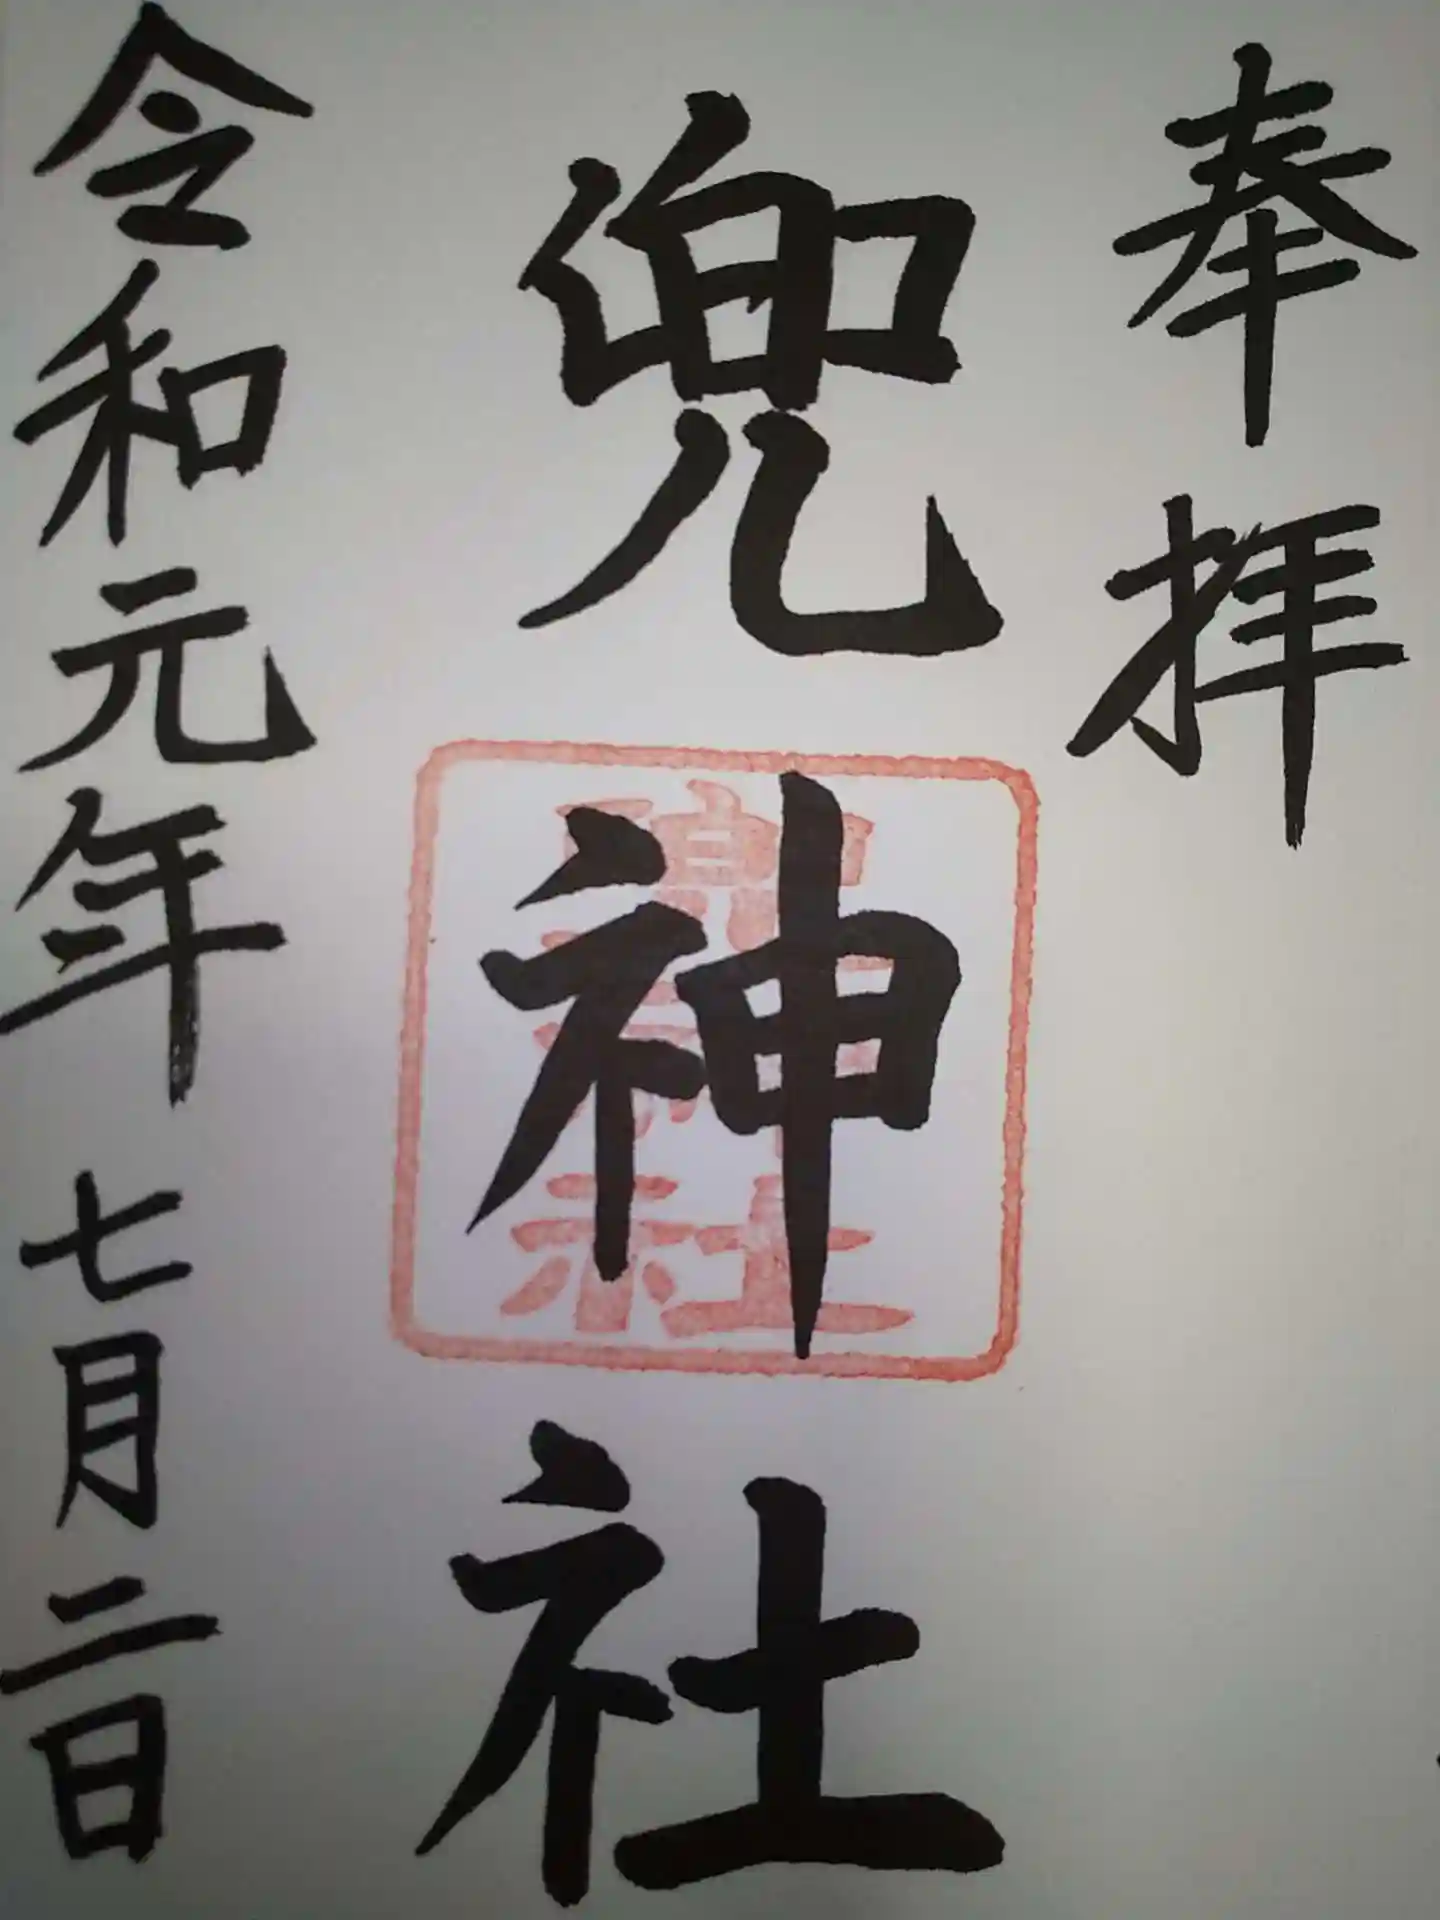 奉拝
兜神社
令和元年 七月二日